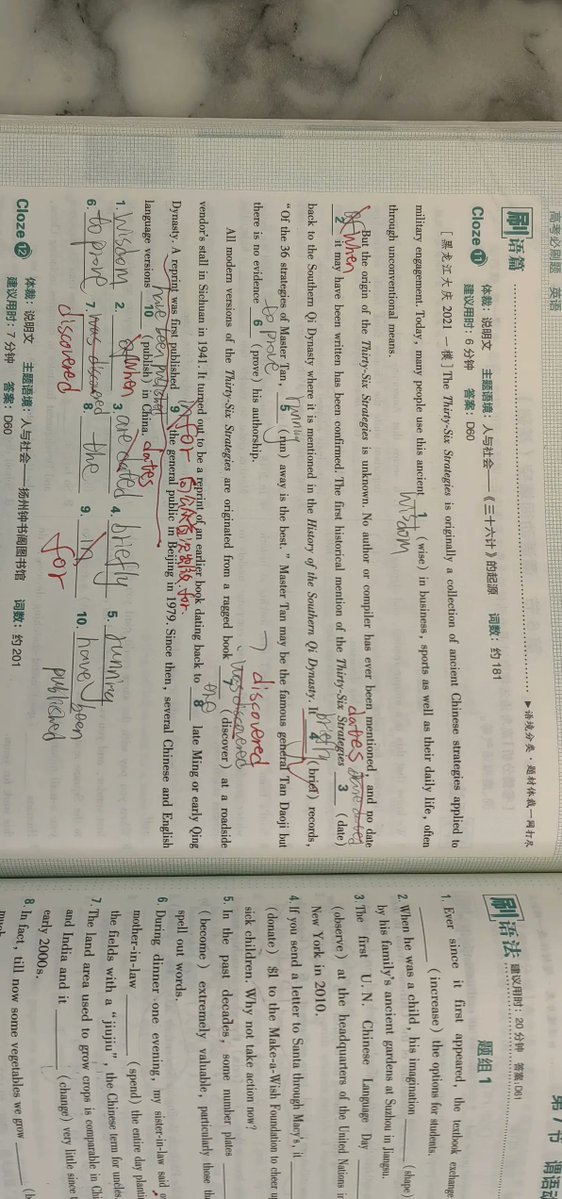 高考必刷题 英语
刷语篇
▶语境分类·题材体裁一网打尽
Cloze 11 体裁:说明文 主题语境:人与社会——《三十六计》的起源 词数:约181
建议用时:6分钟 答案:D60
[黑龙江大庆2021一模] The Thirty-Six Strategies is originally a collection of ancient Chinese strategies applied to
military engagement. Today, many people use this ancient 1 (wise) in business, sports as well as their daily life, often
wisdom
through unconventional means.
But the origin of the Thirty-Six Strategies is unknown. No author or compiler has ever been mentioned, and no date
when
dates
2 it may have been written has been confirmed. The first historical mention of the Thirty-Six Strategies 3 (date)
briefly
back to the Southern Qi Dynasty where it is mentioned in the History of the Southern Qi Dynasty. It 4 (brief) records,
running
"Of the 36 strategies of Master Tan, 5 (run) away is the best." Master Tan may be the famous general Tan Daoji but
to prove
there is no evidence 6 (prove) his authorship.
discovered
All modern versions of the Thirty-Six Strategies are originated from a ragged book 7 (discover) at a roadside
was discovered
vendor's stall in Sichuan in 1941. It turned out to be a reprint of an earlier book dating back to 8 late Ming or early Qing
in for
for.
Dynasty. A reprint was first published 9 the general public in Beijing in 1979. Since then, several Chinese and English
have been published
language versions 10 (publish) in China.
dates
1. wisdom 2. of when 3. are dated 4. briefly 5. running
6. to prove 7. was discovered 8. the 9. in 10. have been
published
discovered
for
Cloze 12 体裁:说明文 主题语境:人与社会——扬州钟书阁图书馆 词数:约201
建议用时:7分钟 答案:D60
刷语法 建议用时:20分钟 答案:D61
题组1
1. Ever since it first appeared, the textbook exchange
(increase) the options for students.
2. When he was a child, his imagination (shape)
by his family's ancient gardens at Suzhou in Jiangsu.
3. The first U.N. Chinese Language Day
(observe) at the headquarters of the United Nations in
New York in 2010.
4. If you send a letter to Santa through Macy's, it
(donate) $1 to the Make-a-Wish Foundation to cheer up
sick children. Why not take action now?
5. In the past decades, some number plates
(become) extremely valuable, particularly those
spell out words.
6. During dinner one evening, my sister-in-law said
mother-in-law (spend) the entire day
the fields with a "jiujiu", the Chinese term for
7. The land area used to grow crops is comparable in
and India and it (change) very little since
early 2000s.
8. In fact, till now some vegetables we grow